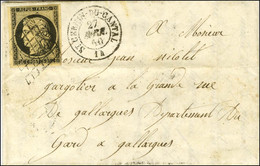 REPUB. FRANC.
ST CERNIN-DU-CANTAL
27
AVRIL
50
(14)
A Monsieur
Monsieur jean
gargotier a la Grande rue
De gallargues Departement Du
Gard a gallargues